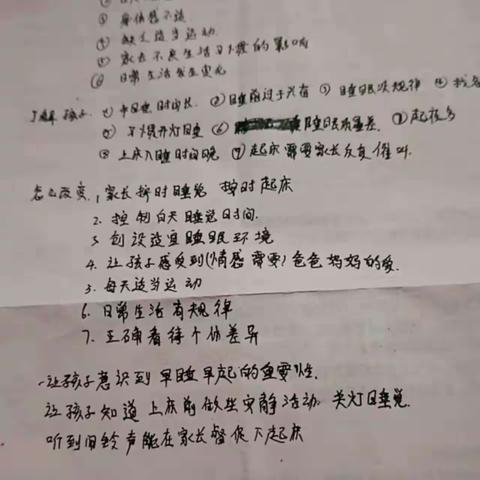 ③ 身体感不适
④ 缺乏适当运动
⑤ 家长不良生活习惯的影响
⑥ 日常生活发生变化
了解孩子: ① 中午睡时间长. ② 睡前过于兴奋 ③ 睡眠不规律 ④
⑤ 不惯开灯睡 ⑥ 睡眠质量差. ⑦ 起夜多
⑧ 上床入睡时间晚 ⑨ 起床需要家长反复催叫.
怎么改变. 1. 家长按时睡觉 按时起床
2. 控制白天睡觉时间.
3. 创设适宜睡眠环境
4. 让孩子感受到(情感需要)爸爸妈妈的爱.
5. 每天适当运动
6. 日常生活有规律
7. 正确看待个体差异
-让孩子意识到早睡早起的重要性.
让孩子知道上床前做些安静活动. 关灯睡觉.
听到闹铃声能在家长督促下起床